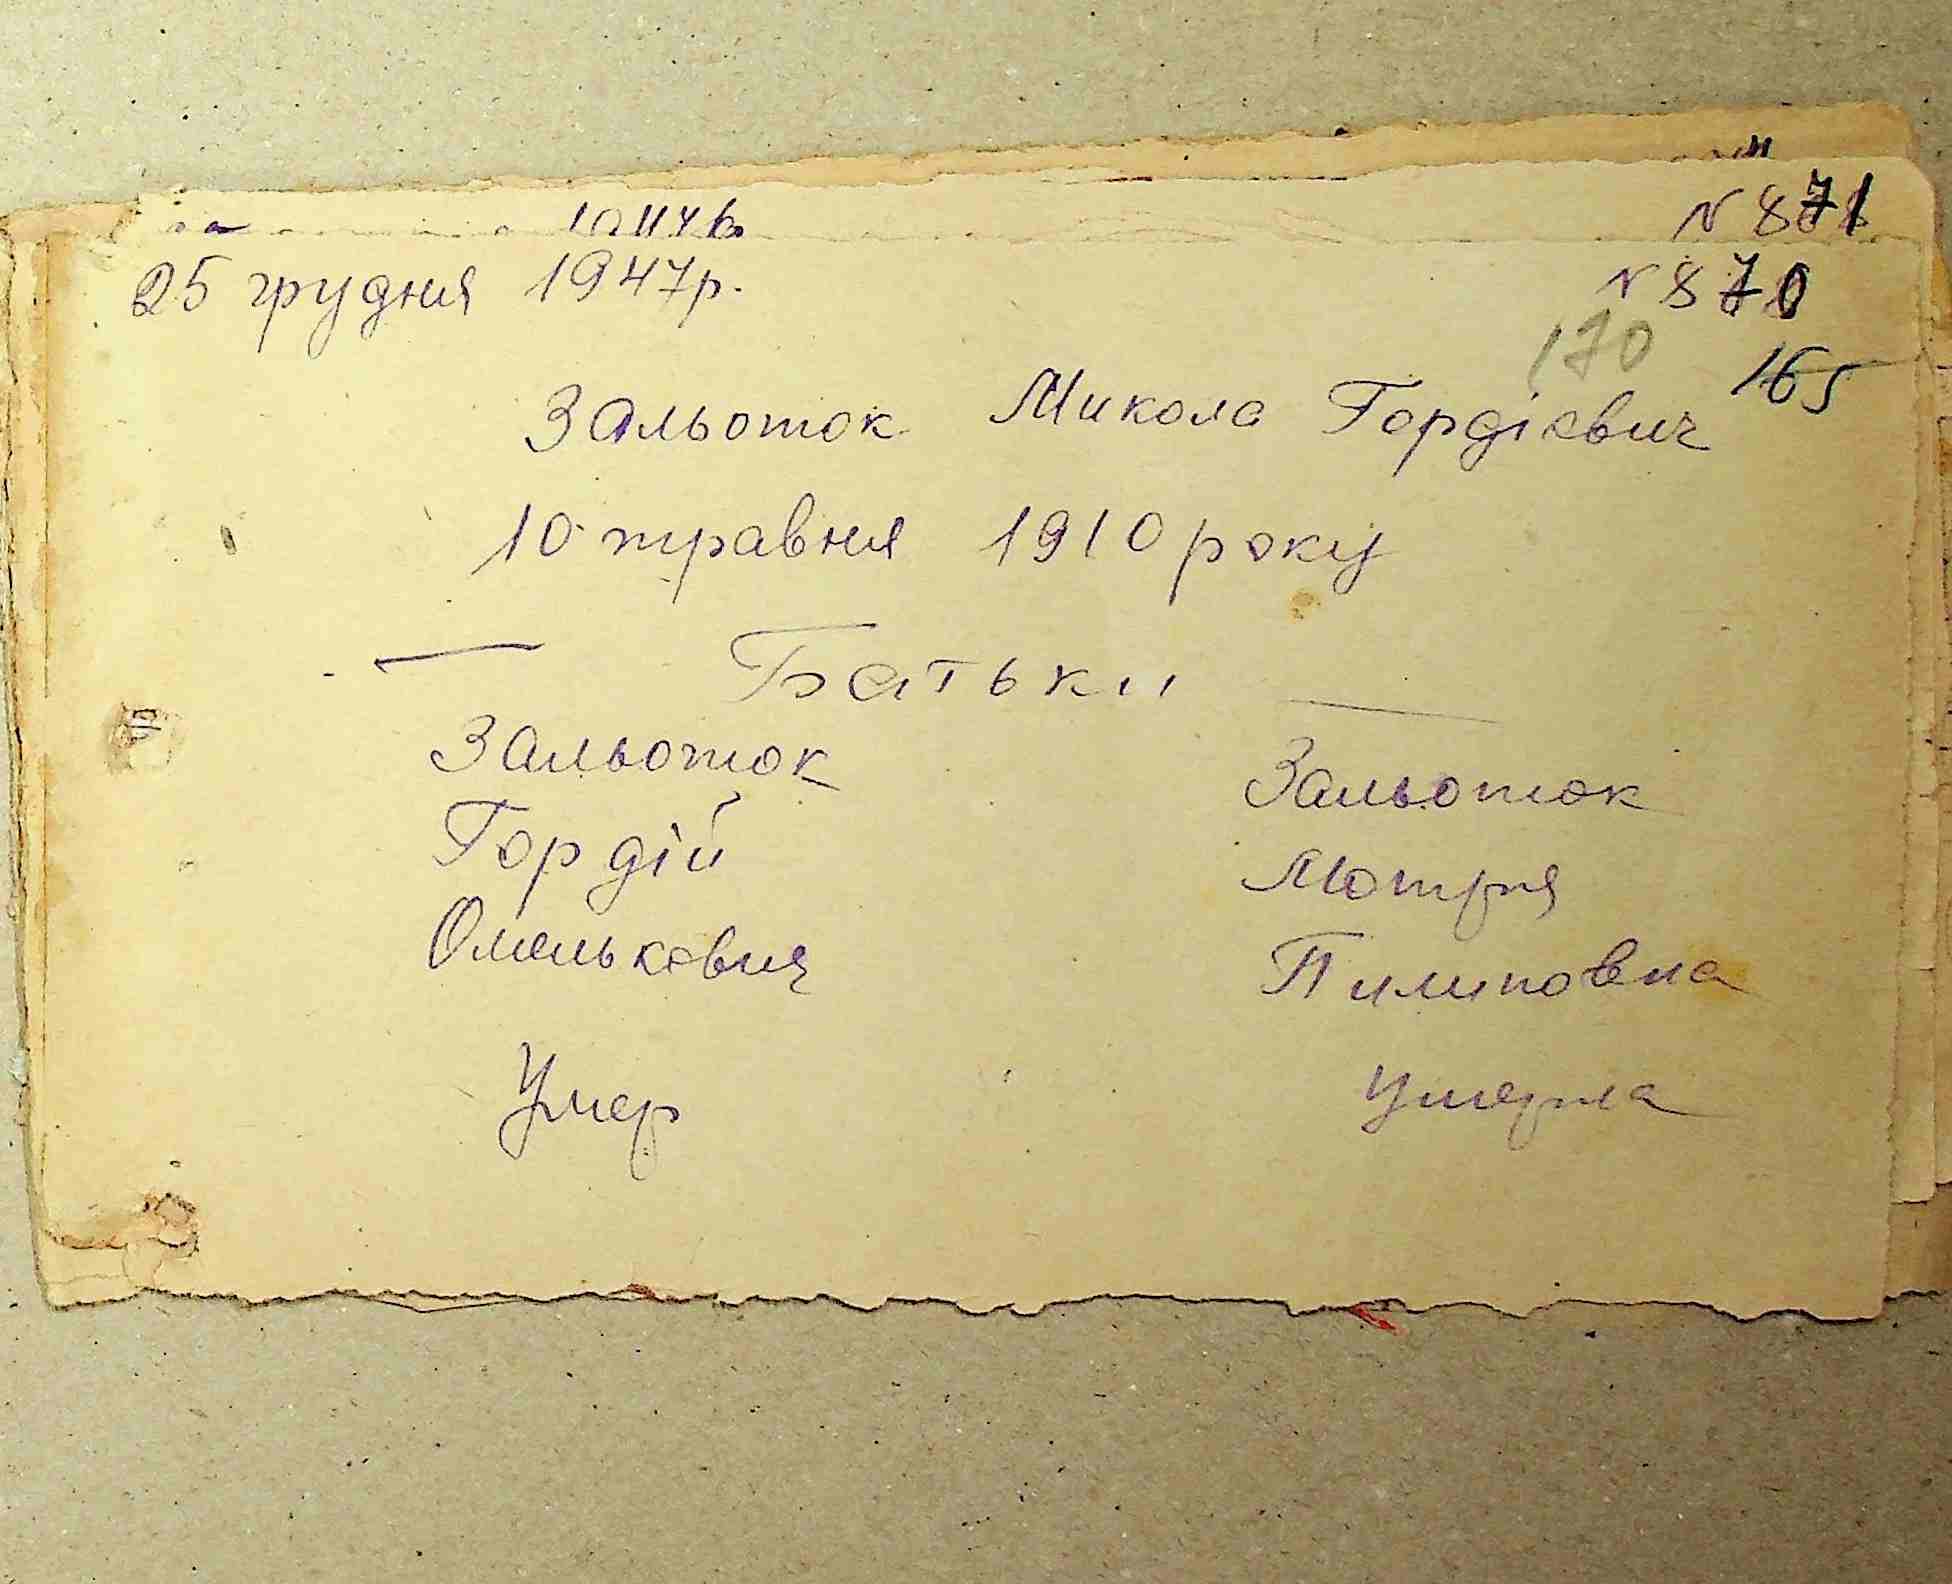 N 871
25 грудня 1947р.
N 870
170
165
Зальоток Микола Гордієвич
10 травня 1910 року
Батьки
Зальоток Зальоток
Гордій Мотря
Омелькович Пилиповна
Умер Умерла